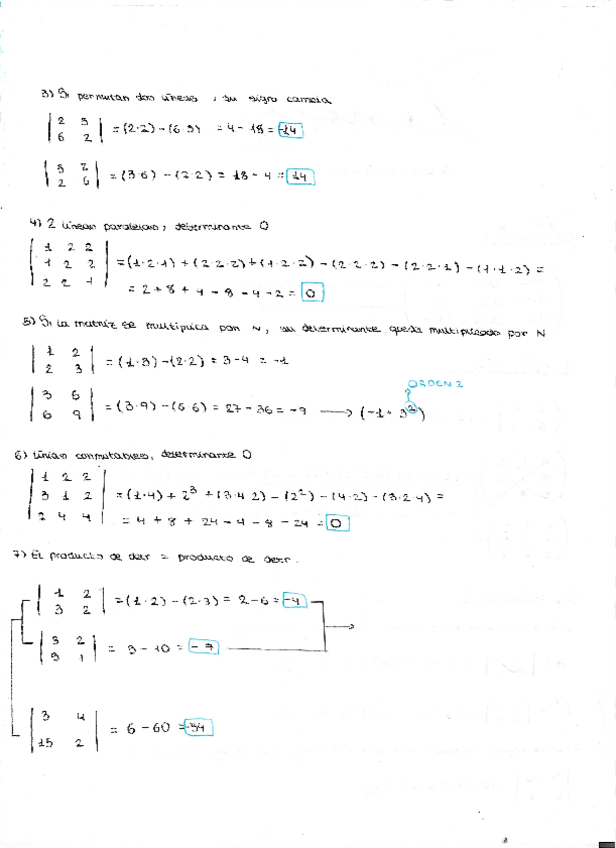 3) Si permutan dos líneas, su signo cambia
| 2 3 | = (2·2) - (6·3) = 4 - 18 = -14
| 6 2 |
| 3 2 | = (3·6) - (2·2) = 18 - 4 = 14
| 2 6 |
4) 2 líneas paralelas, determinante 0
| 1 2 2 |
| 1 2 2 | = (1·2·1) + (2·2·2) + (1·2·2) - (2·2·2) - (2·2·1) - (1·1·2) =
| 2 2 1 | = 2 + 8 + 4 - 8 - 4 - 2 = 0
5) Si la matriz se multiplica por N, su determinante queda multiplicado por N
| 1 2 | = (1·3) - (2·2) = 3 - 4 = -1
| 2 3 |
ORDEN 2
| 3 6 | = (3·9) - (6·6) = 27 - 36 = -9 → (-1 · 3²)
| 6 9 |
6) Líneas conmutables, determinante 0
| 1 2 2 |
| 3 1 2 | = (1·4) + 2³ + (3·4·2) - (2²) - (4·2) - (3·2·4) =
| 2 4 4 | = 4 + 8 + 24 - 4 - 8 - 24 = 0
7) El producto de detr = producto de detr.
| 1 2 | = (1·2) - (2·3) = 2 - 6 = -4
| 3 2 |
| 3 2 | = 3 - 10 = -7
| 1 |
| 3 4 | = 6 - 60 = -54
| 15 2 |